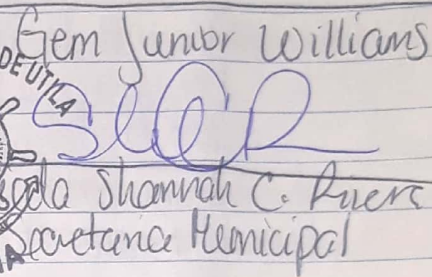 Gem Junior Williams
DE UTILA
Shannah C.
Secretaria Municipal